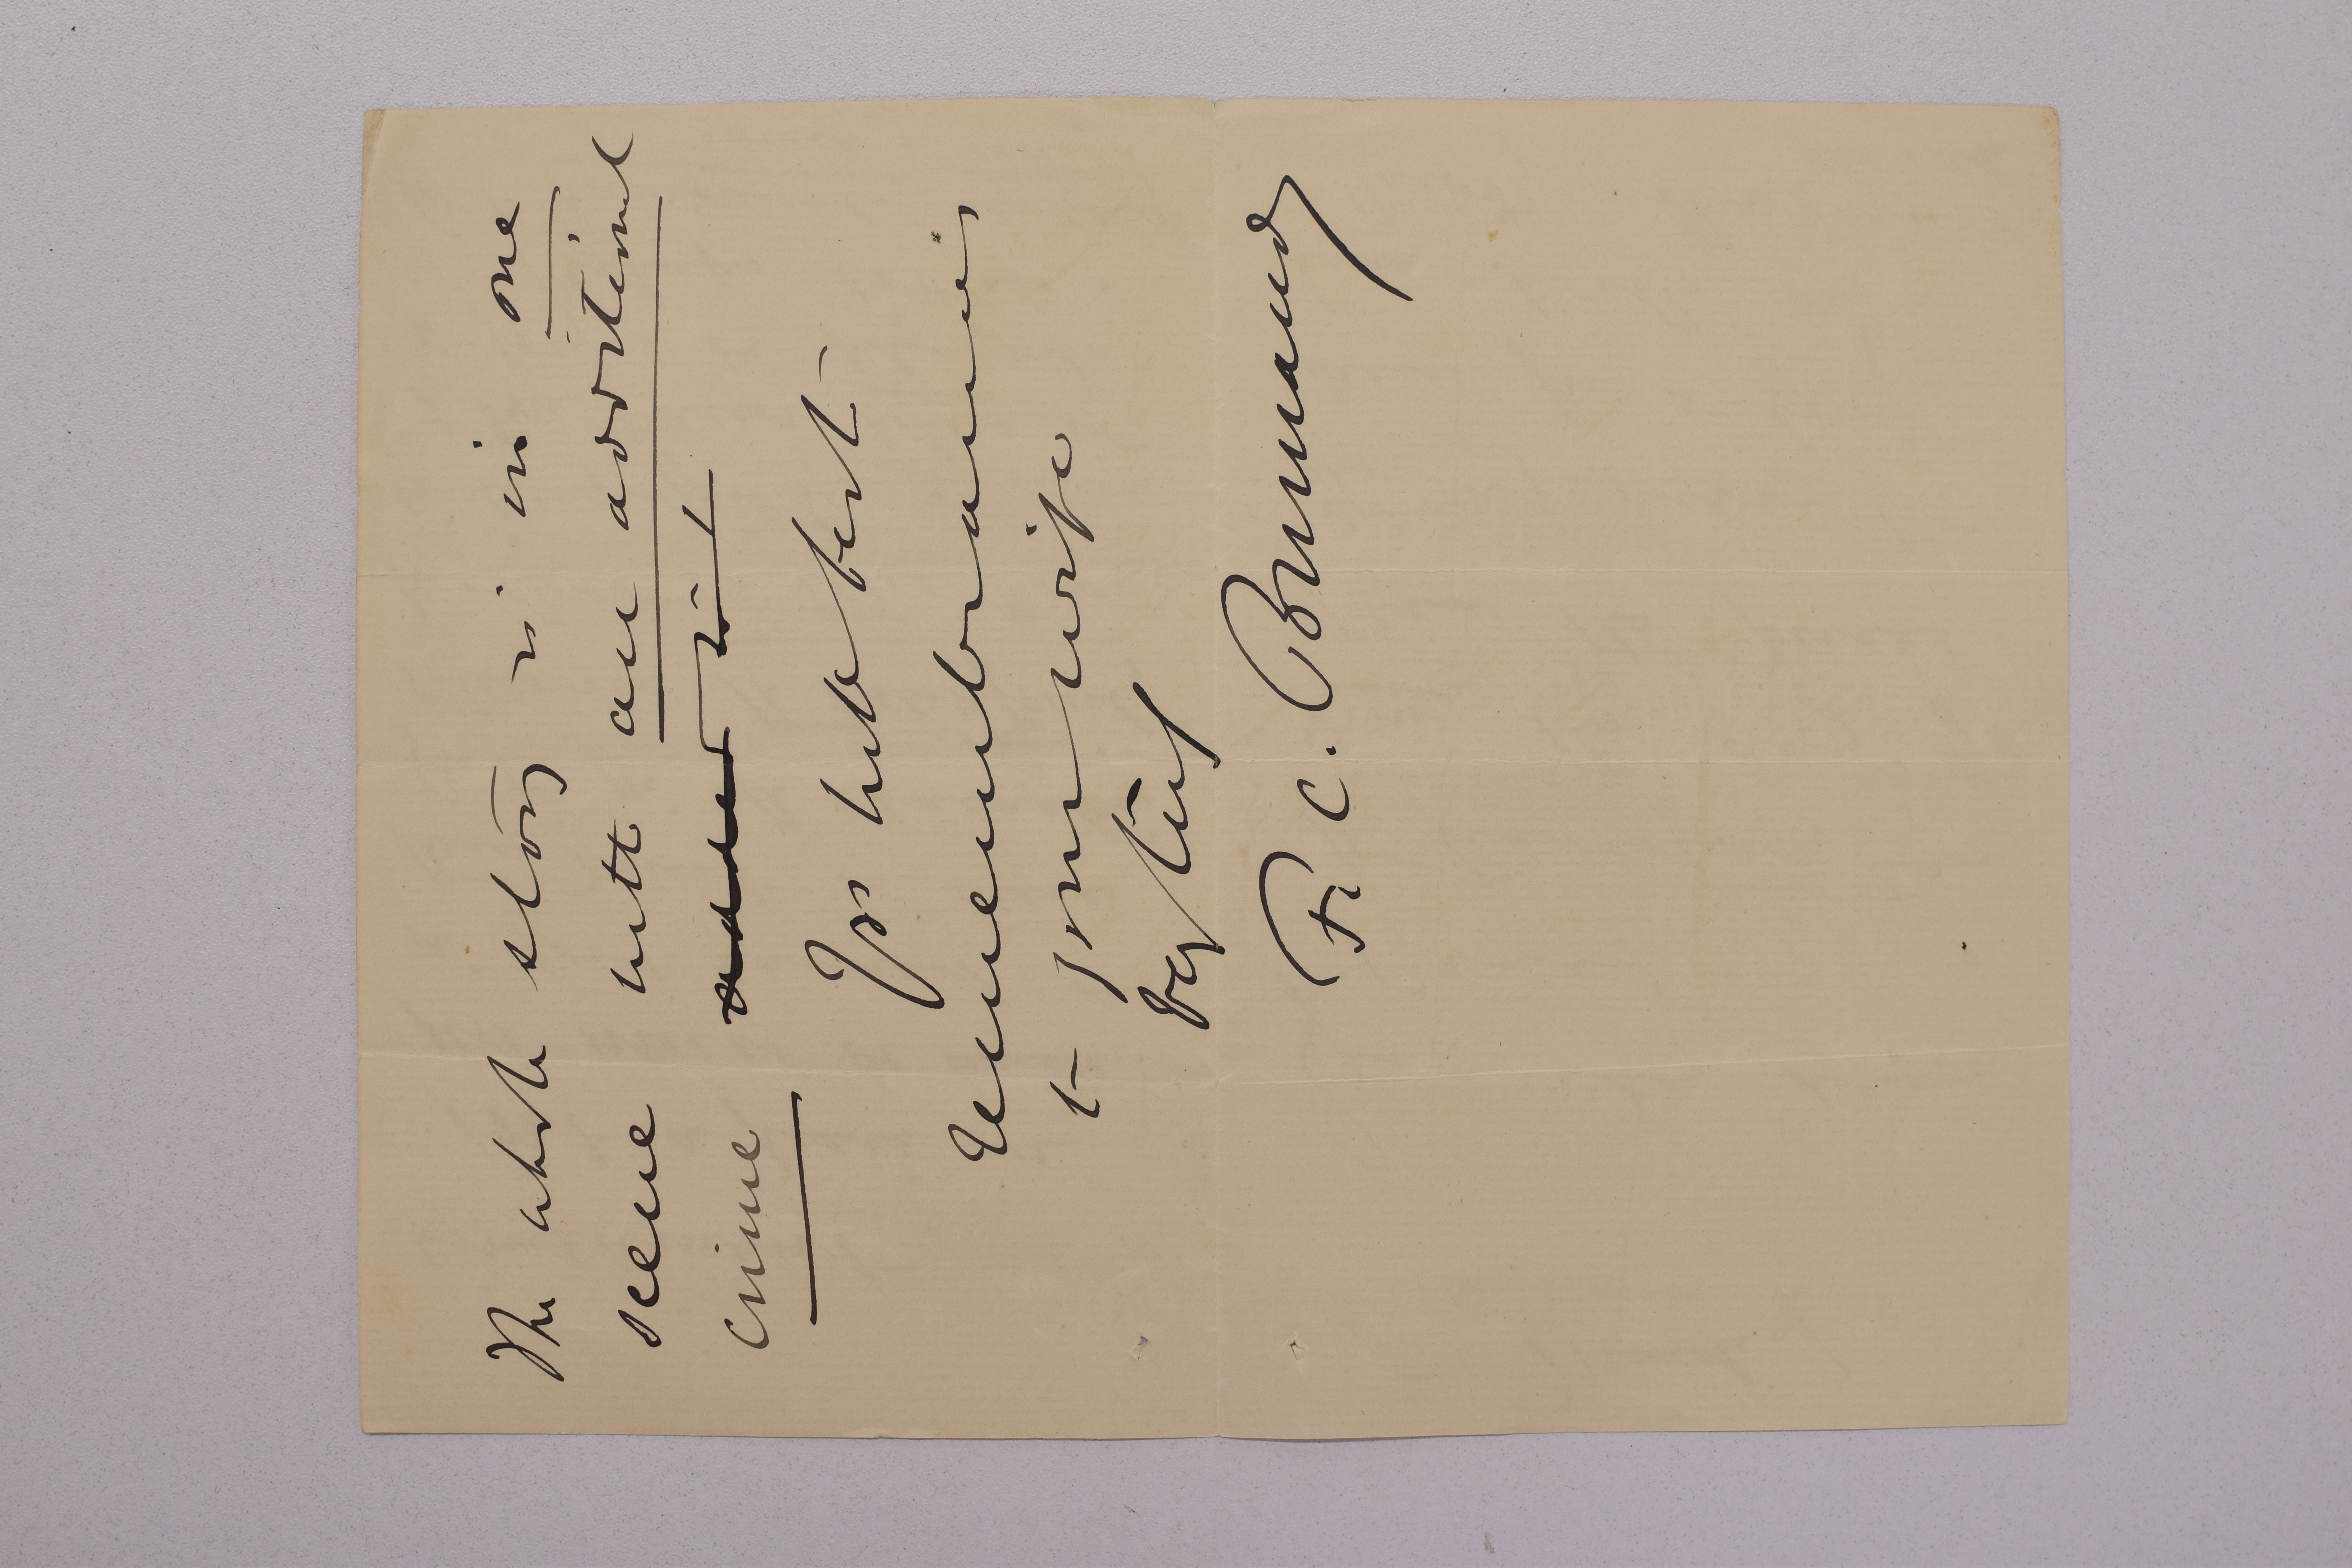 The whole story is in one
scene with an additional
crime
Yrs with best
remembrances
to your wife
Vy truly
F. C. Burnand